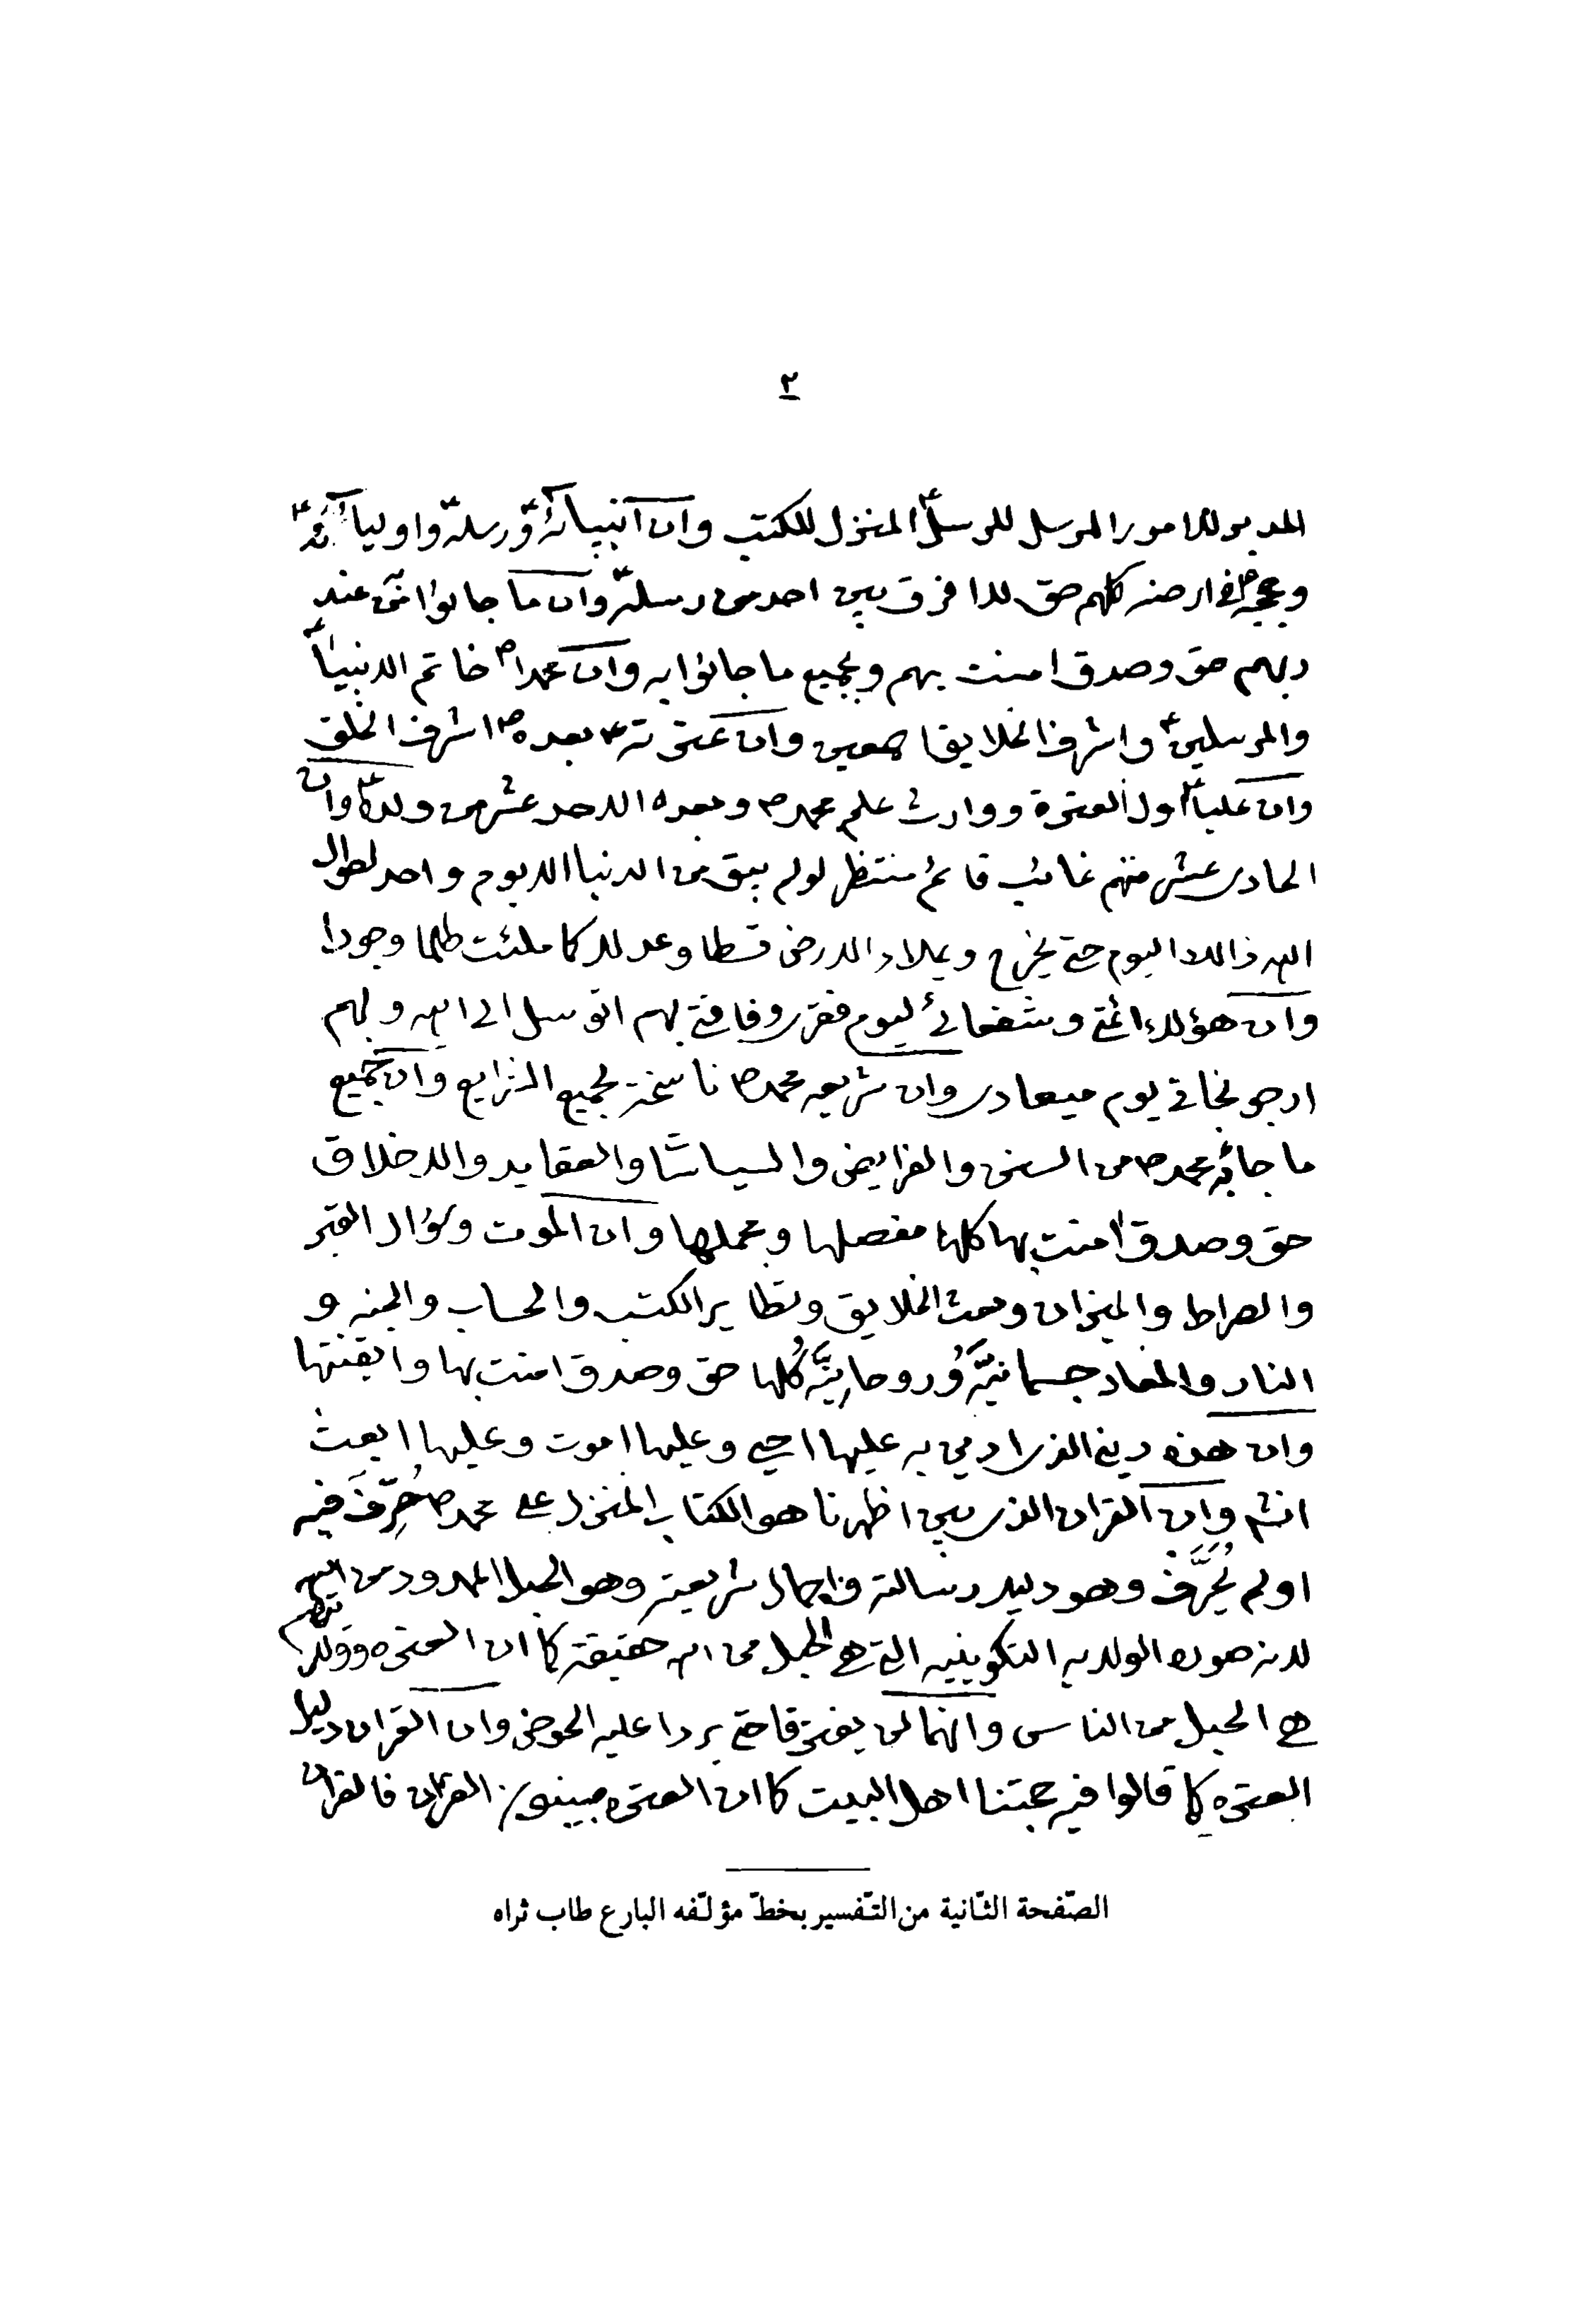 ٢
المدبر للامور المرسل للرسلؑ المنزل للكتب وان انبيائهؑ ورسلهؑ واوليائهؑ
وحججهؑ فى ارضه كلهم حق لا افرق بين احد من رسلهؑ وان ما جاؤا من عند
ربهم حق وصدق امنت بهم وبجميع ما جاؤا به وان محمداص خاتم الانبياءؑ
والمرسلينؑ واشرف الخلايق اجمعين وان عترتهؑ بعدهص اشرف الخلق
وان علياؑ اول العترة ووارث علم محمدص وبعده الاحد عشر من ولدهؑ وان
الحادى عشر منهم غائب قائم منتظر لو لم يبق من الدنيا الا يوم واحد لطول
الله ذالك اليوم حتى يخرج ويملاء الارض قسطا وعدلا كما ملئت ظلما وجورا
وان هؤلاء ائمتى وشفعائى ليوم فقرى وفاقتى بهم اتوسل الى الله وبهم
ارجو نجاتى يوم ميعادى وان شريعه محمدص ناسخة لجميع الشرايع وان جميع
ما جاء به محمدص من السنن والفرايض والسياسات والعقايد والاخلاق
حق وصدق امنت بها كلها مفصلها ومجملها وان الموت وسؤال القبر
والصراط والميزان وبعث الخلايق وتطاير الكتب والحساب والجنه و
النار والمعاد جسمانيَّةً وروحانيَّةً كُلها حق وصدق امنت بها وايقنتها
وان هذه دينى الذى ادين به عليها احيى وعليها اموت وعليها ابعث
انشم وان القران الذى بين اظهرنا هو الكتاب المنزل على محمدص حُرِّفَ فيه
او لم يُحَرَّف وهو دليل رسالته واجمال شريعته وهو الحبل الممدود من الله
لانه صورة الولاية التكوينيه التى هى الحبل من الله حقيقة كما ان العتره وولايتهم
هى الحبل من الناس وانهما لن يفترقا حتى يردا عليه الحوض وان القران دليل
العتره كما قالوا فيه حجتنا اهل البيت كما ان العتره مبينوا القران فالقران
الصّفحة الثّانية من التّفسير بخطّ مؤلّفه البارع طاب ثراه